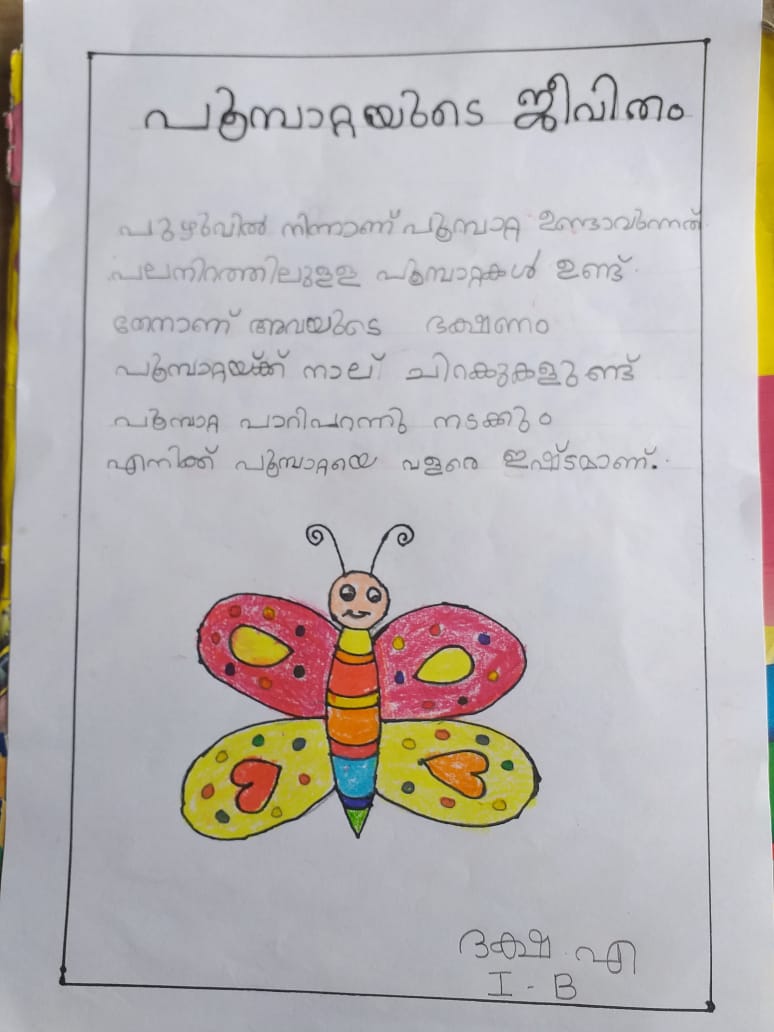 പൂമ്പാറ്റയുടെ ജീവിതം
പുഴുവിൽ നിന്നാണ് പൂമ്പാറ്റ ഉണ്ടാവുന്നത്
പലനിറത്തിലുള്ള പൂമ്പാറ്റകൾ ഉണ്ട്.
തേനാണ് അവയുടെ ഭക്ഷണം
പൂമ്പാറ്റയ്ക്ക് നാല് ചിറകുകളുണ്ട്
പൂമ്പാറ്റ പാറിപറന്നു നടക്കും
എനിക്ക് പൂമ്പാറ്റയെ വളരെ ഇഷ്ടമാണ്.
ദക്ഷ എ
I - B